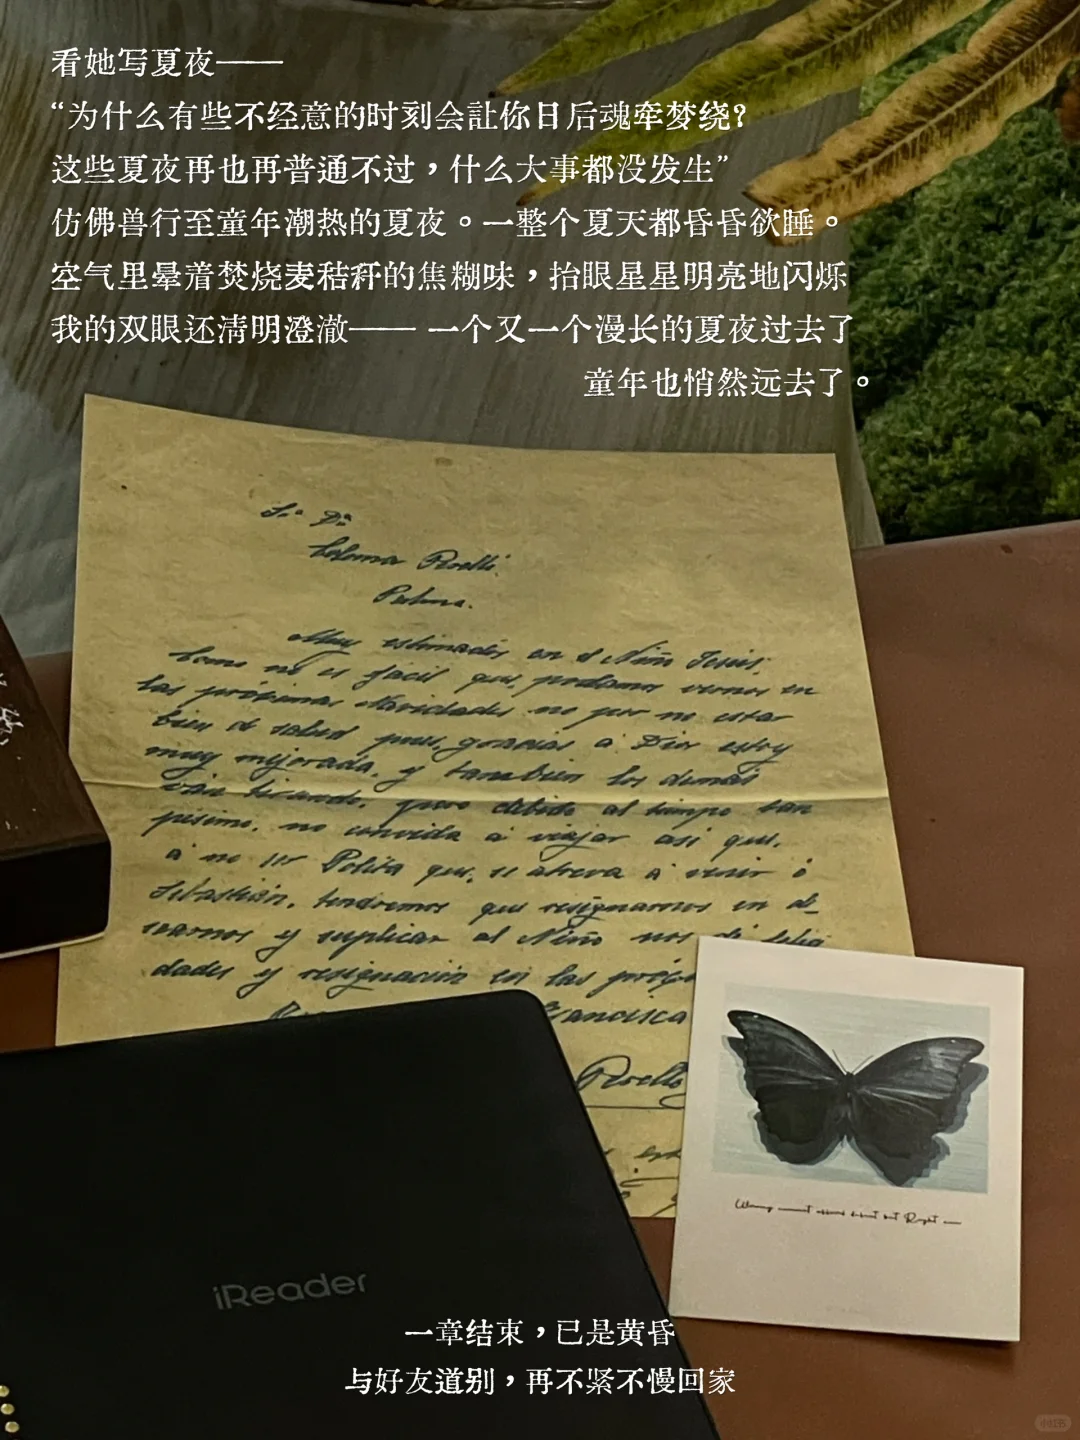 看她写夏夜——
“为什么有些不经意的时刻会让你日后魂牵梦绕？
这些夏夜再也再普通不过，什么大事都没发生”
仿佛兽行至童年潮热的夏夜。一整个夏天都昏昏欲睡。
空气里晕着焚烧麦秸秆的焦糊味，抬眼星星明亮地闪烁
我的双眼还清明澄澈—— 一个又一个漫长的夏夜过去了
童年也悄然远去了。
Sra. Dña
Paloma Perelló.
Palma.
Muy estimada en el Niño Jesús:
Como no es fácil que podamos vernos en
las próximas Navidades no por no estar
bien de salud pues, gracias a Dios estoy
muy mejorada, y también los demás
van tirando, pero debido al tiempo tan
pésimo, no convida a viajar así que,
a no ser Polita que, se atreva a venir ó
Sebastián, tendremos que resignarnos en de-
searnos y suplicar al Niño nos dé felici
dades y resignación en las
Francisca
Perelló
iReader
一章结束，已是黄昏
与好友道别，再不紧不慢回家